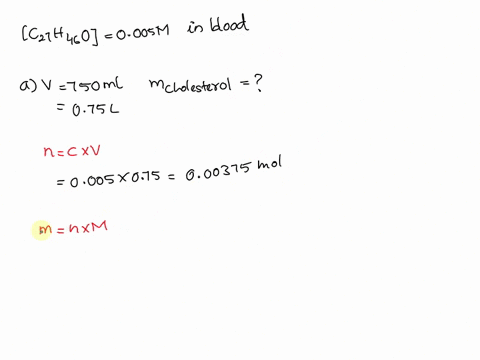 [C27H46O] = 0.005M in blood
a) V = 750 mL mcholesterol = ?
= 0.75L
n = C × V
= 0.005 × 0.75 = 0.00375 mol
m = n × M